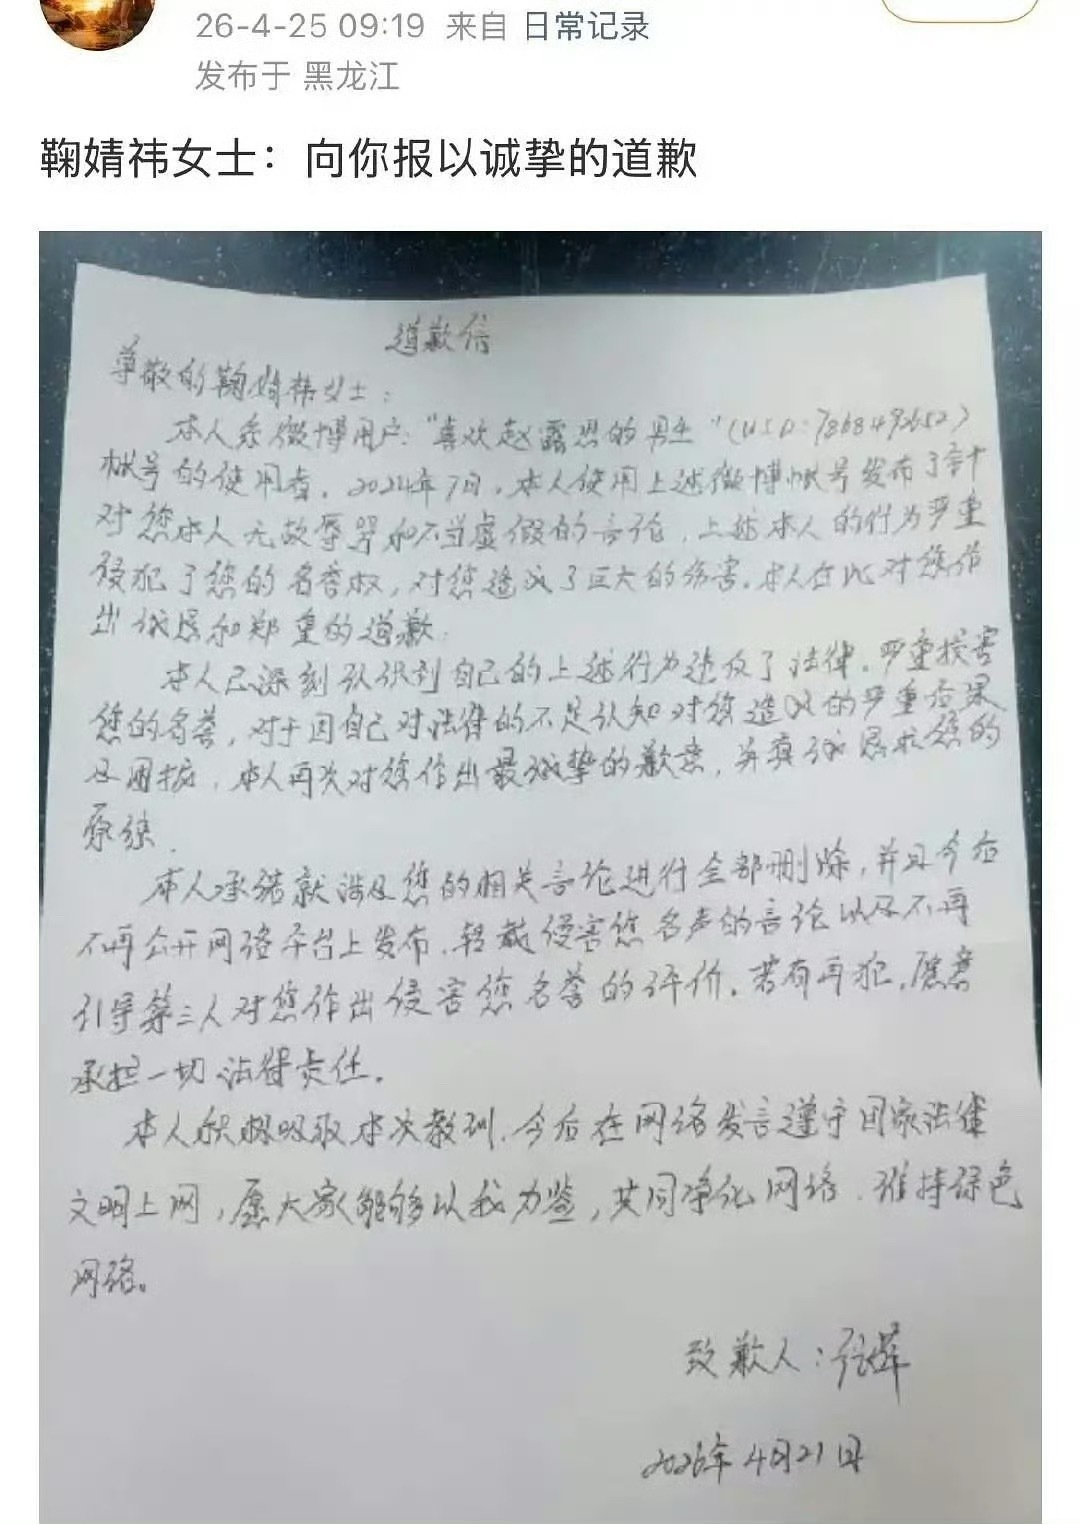 26-4-25 09:19 来自 日常记录
发布于 黑龙江
鞠婧祎女士：向你报以诚挚的道歉
道歉信
尊敬的鞠婧祎女士：
本人系微博用户："喜欢赵露思的男生"(USD:7868492652)
帐号的使用者。2024年7月，本人使用上述微博帐号发布了
对您本人无故辱骂和不当虚假的言论，上述本人的行为严重
侵犯了您的名誉权，对您造成了巨大的伤害。本人在此对您作
出诚恳和郑重的道歉。
本人已深刻认识到自己的上述行为违反了法律，严重损害
您的名誉，对于因自己对法律的不足认知对您造成的严重后果
及困扰，本人再次对您作出最诚挚的歉意，并真诚恳求您的
原谅。
本人承诺就涉及您的相关言论进行全部删除，并且今后
不再公开网络平台上发布、转载侵害您名声的言论以及不再
引导第三人对您作出侵害您名誉的评价。若有再犯，愿意
承担一切法律责任。
本人积极吸取本次教训，今后在网络发言遵守国家法律
文明上网，愿大家能够以我为鉴，共同净化网络、维持绿色
网络。
致歉人：张
2026年4月21日